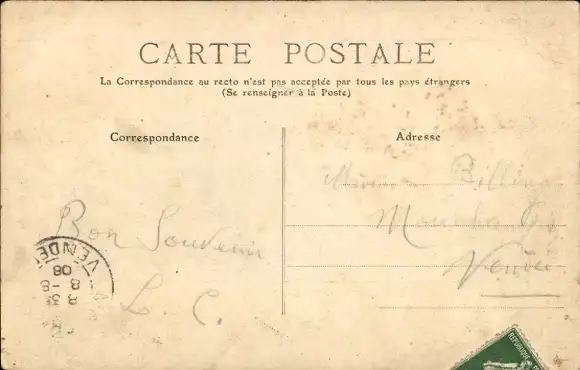 CARTE POSTALE
La Correspondance au recto n'est pas acceptée par tous les pays étrangers
(Se renseigner à la Poste)
Correspondance
Adresse
Bon Souvenir
L. C.
VENDÉE
8 35
8 - 8
08
RÉPUBLIQUE